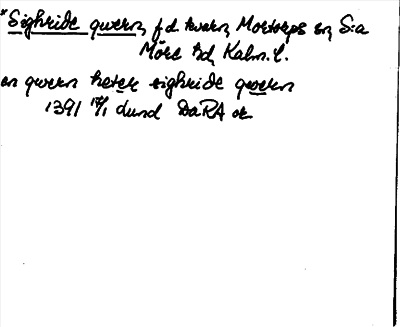 *Sighride qwern, f.d. kvarn, Mortorps sn, S:a
Möre hd, Kalm. l.
en qwern heter sighride qwern
1391 17/1 dund DaRA or.